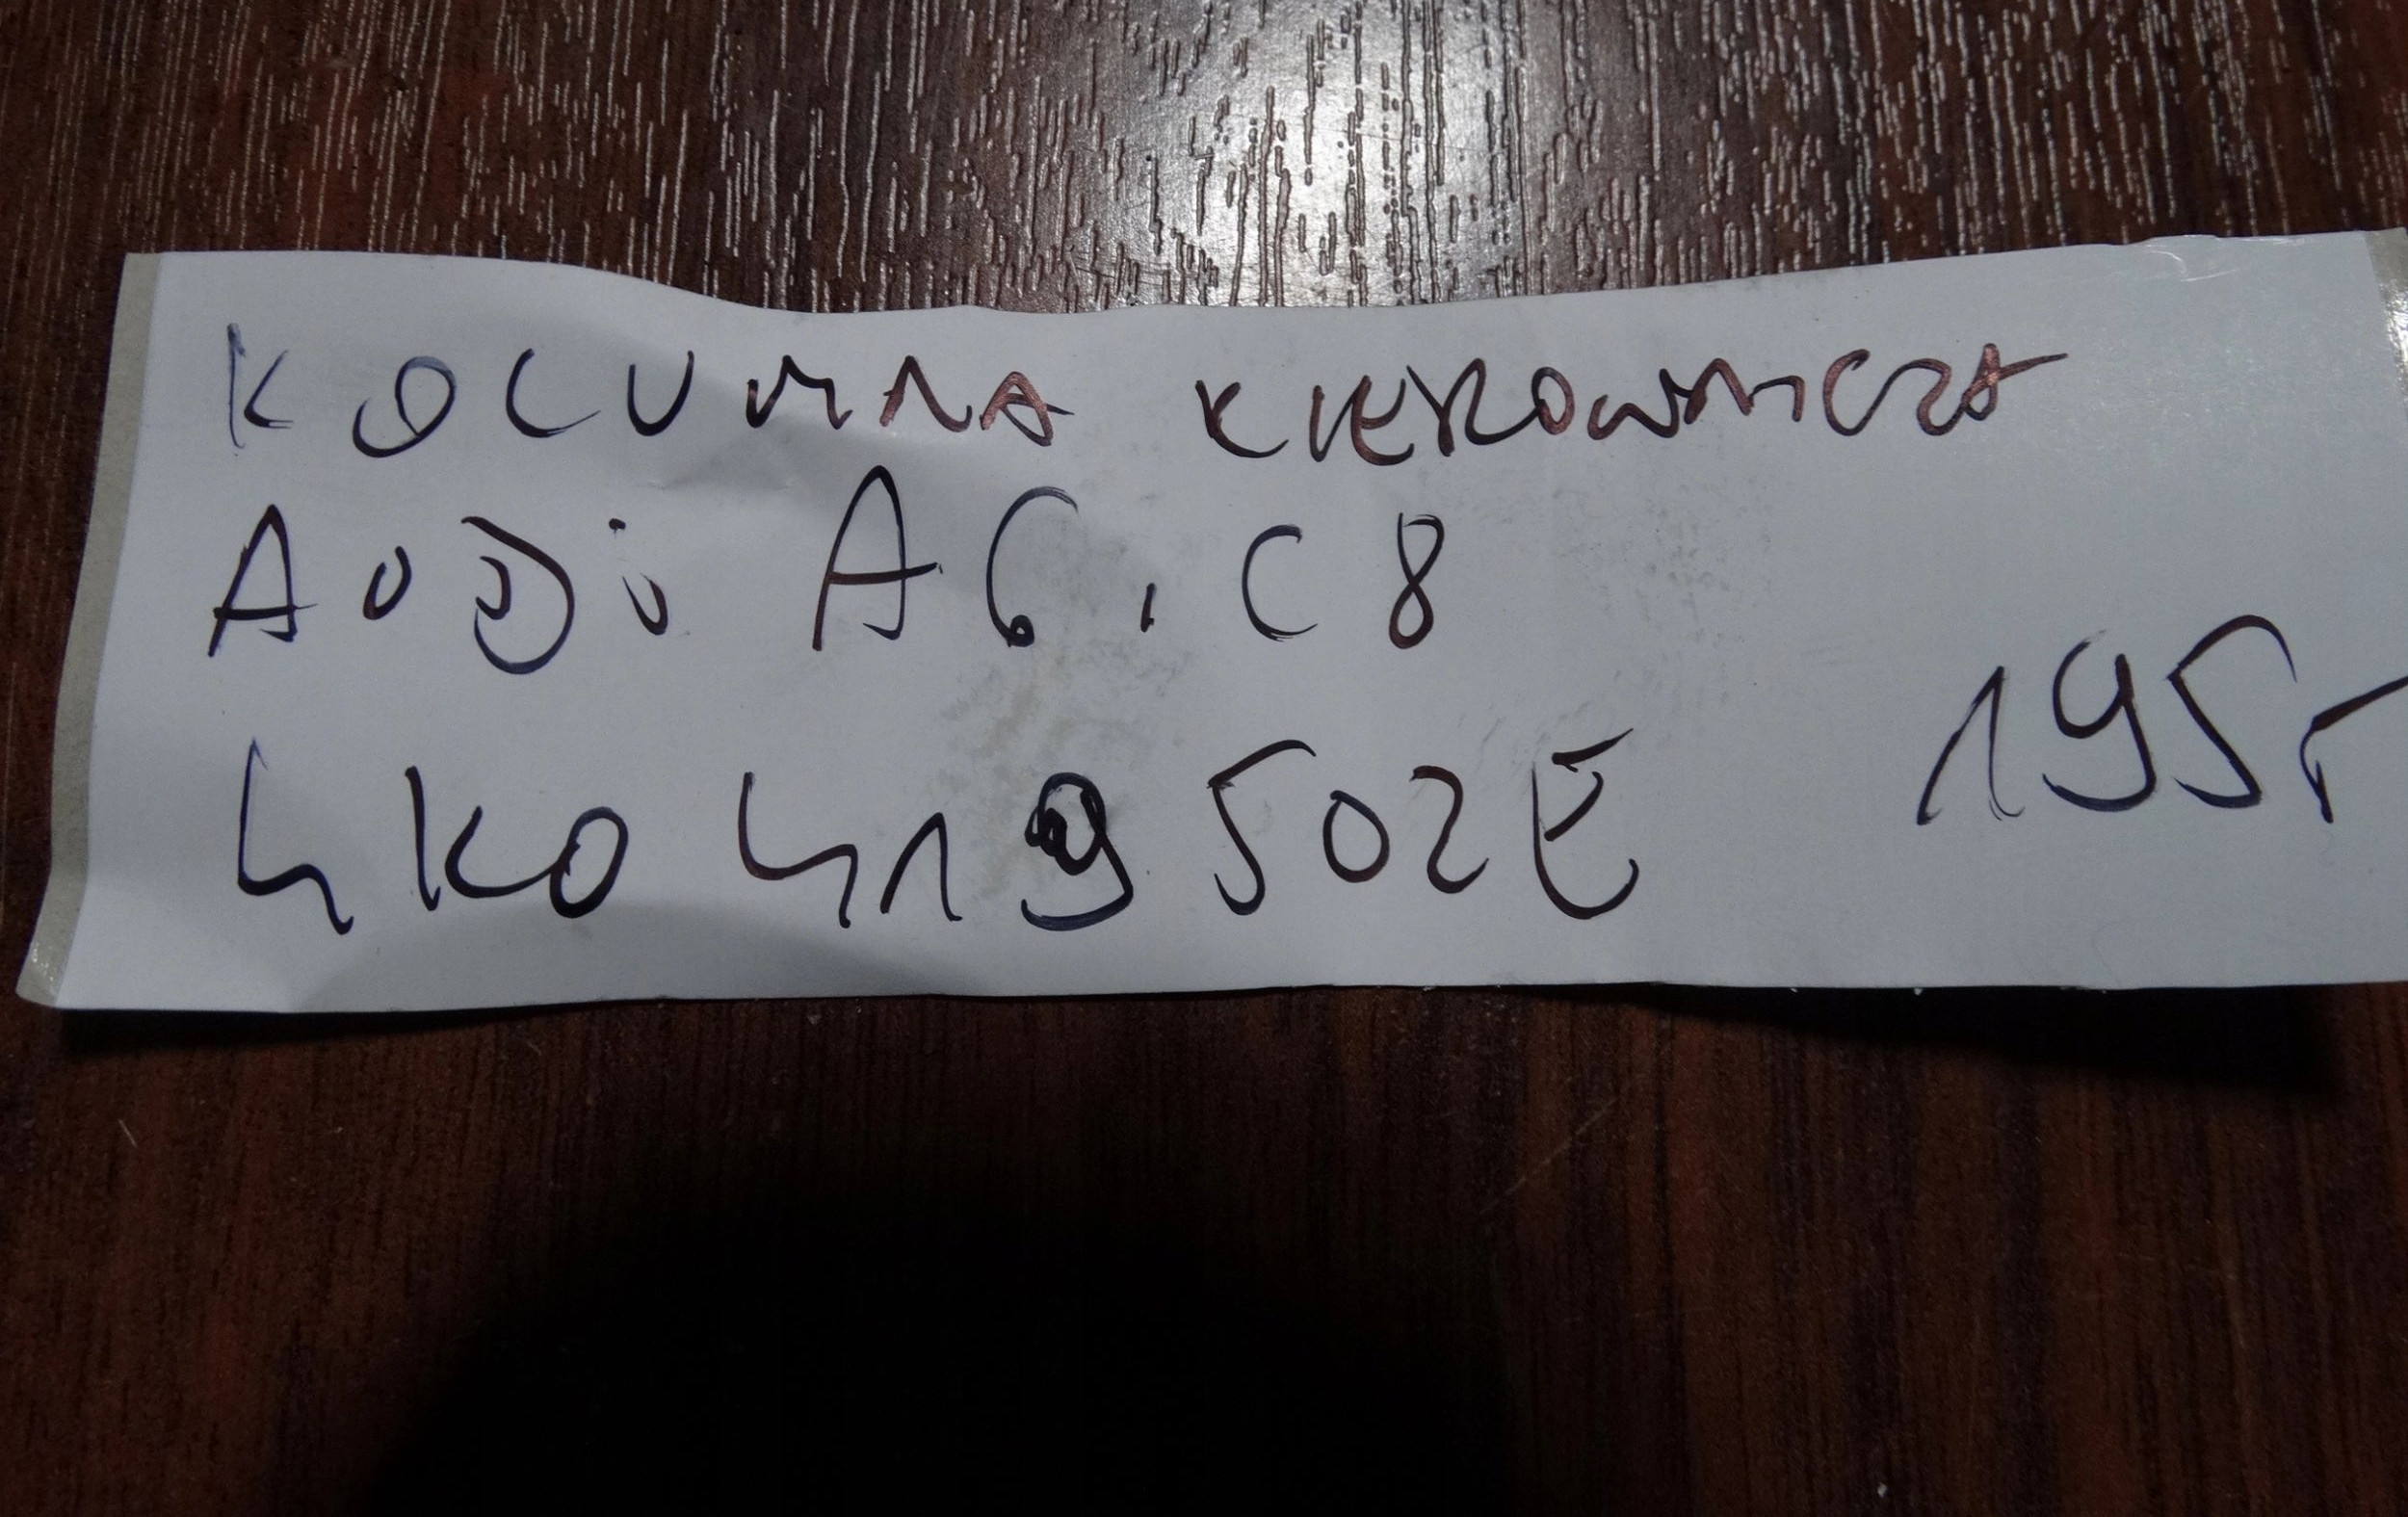 KOLUMNA KIEROWNICZA
AUDi A6. C8
4K0 419 502E
195r